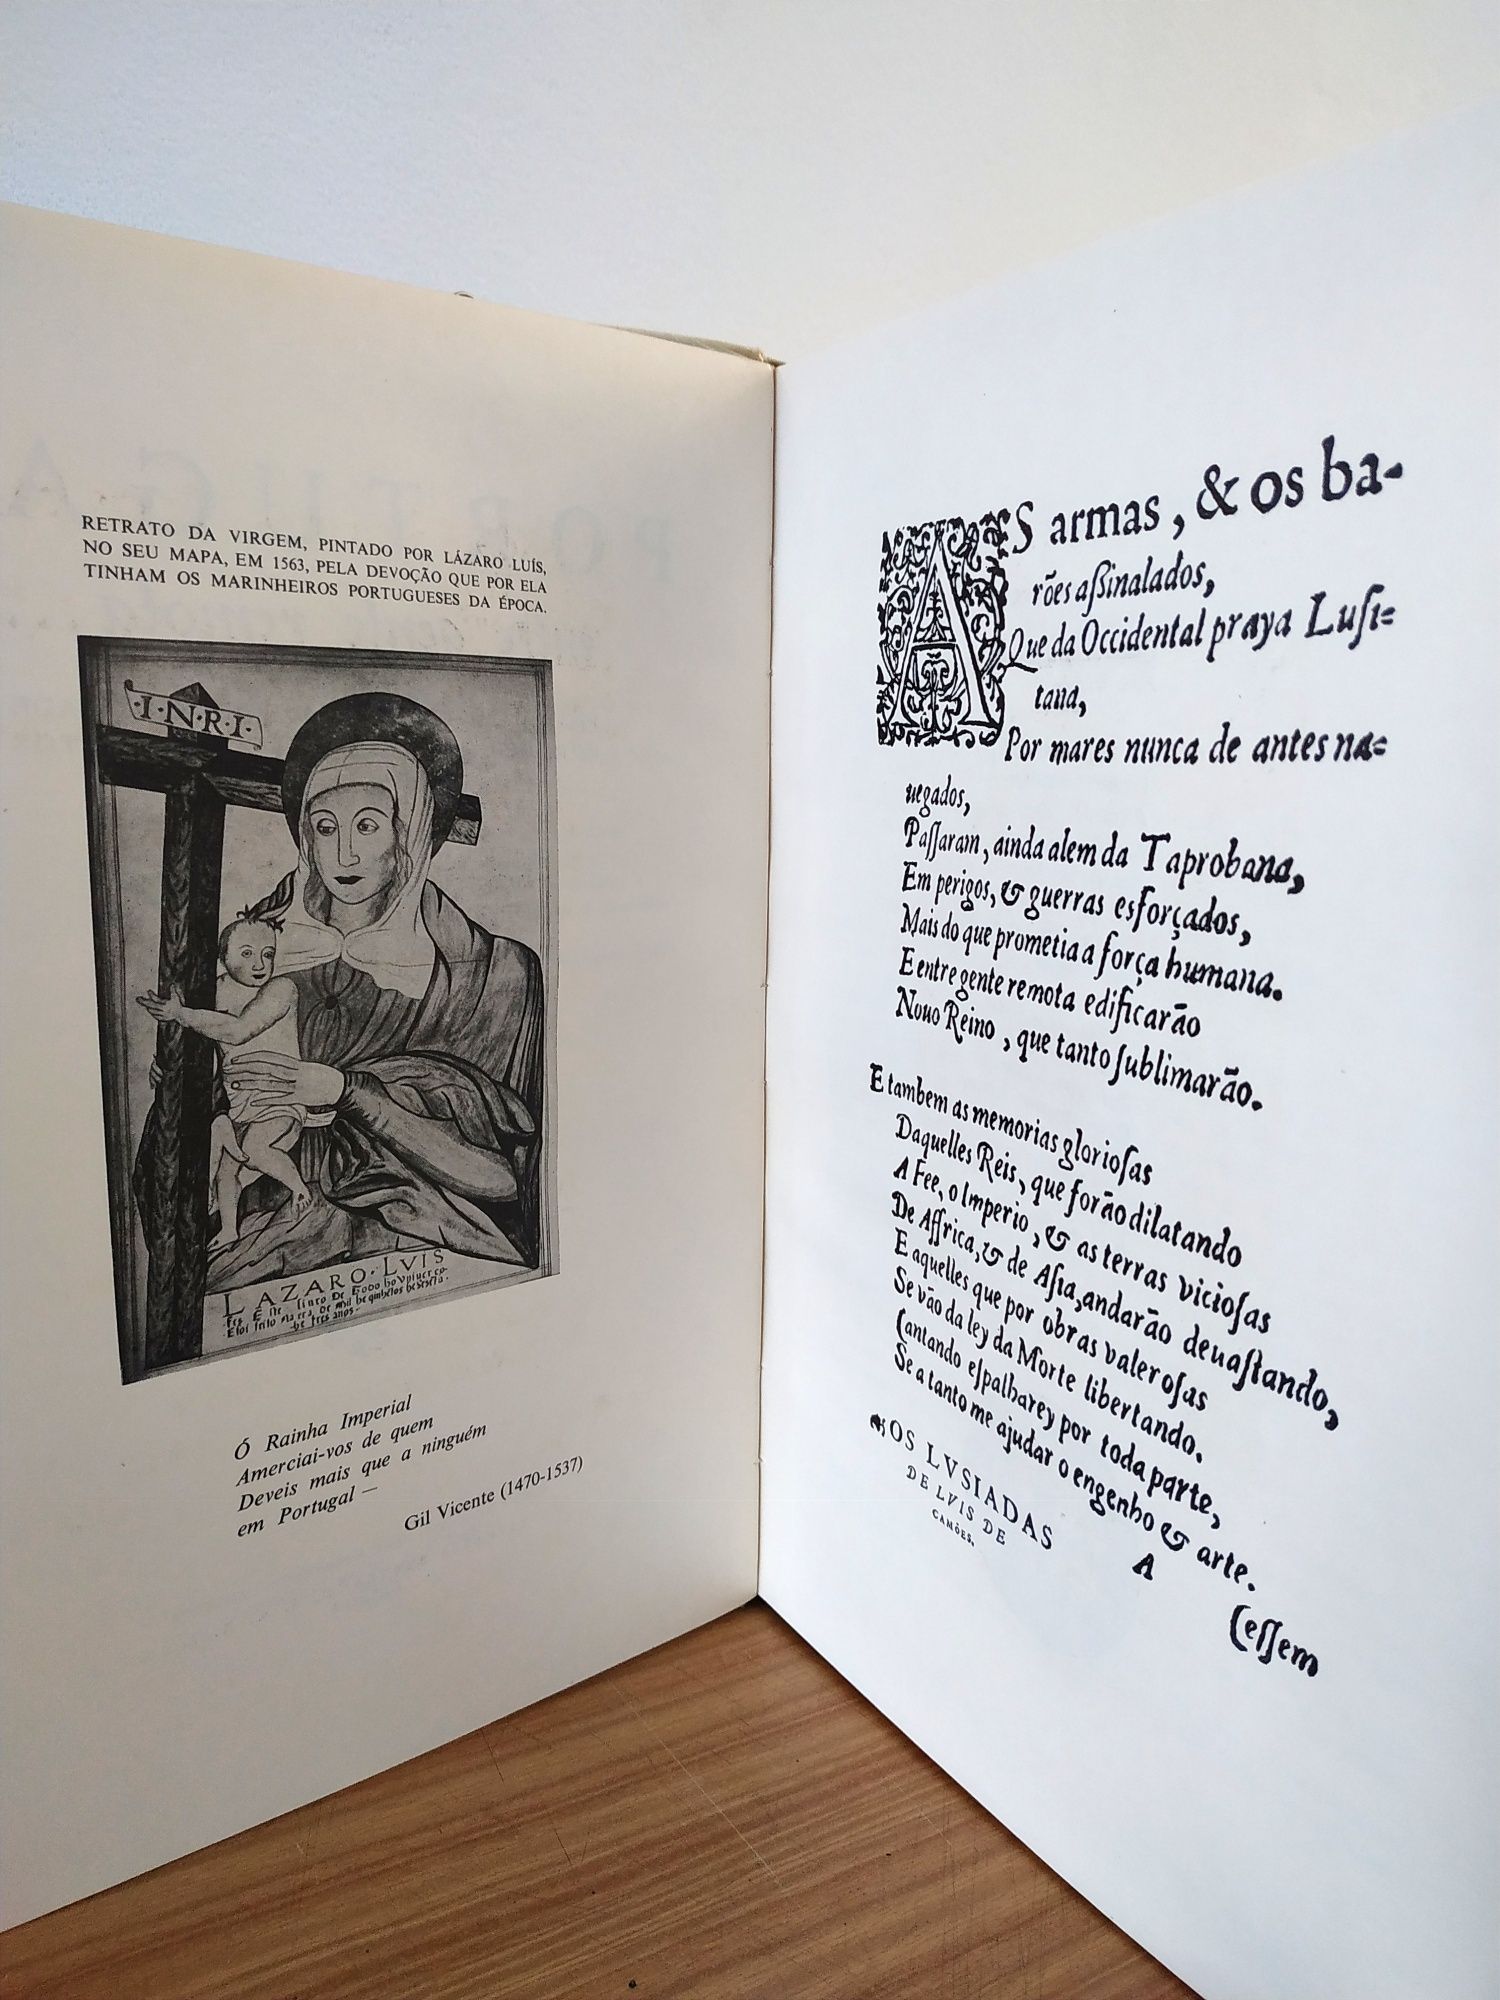 RETRATO DA VIRGEM, PINTADO POR LÁZARO LUÍS,
NO SEU MAPA, EM 1563, PELA DEVOÇÃO QUE POR ELA
TINHAM OS MARINHEIROS PORTUGUESES DA ÉPOCA.
·I·N·R·I·
LAZARO·LVIS
Ó Rainha Imperial
Amerciai-vos de quem
Deveis mais que a ninguém
em Portugal —
Gil Vicente (1470-1537)
AS armas, & os ba-
rões aßinalados,
Que da Occidental praya Luſi-
tana,
Por mares nunca de antes na-
uegados,
Paſſaram, ainda alem da Taprobana,
Em perigos, & guerras esforçados,
Mais do que prometia a força humana.
E entre gente remota edificarão
Nouo Reino, que tanto ſublimarão.
E tambem as memorias glorioſas
Daquelles Reis, que forão dilatando
A Fee, o Imperio, & as terras vicioſas
De Affrica, & de Aſia, andarão deuaſtando,
E aquelles que por obras valeroſas
Se vão da ley da Morte libertando.
Cantando eſpalharey por toda parte,
Se a tanto me ajudar o engenho & arte.
OS LVSIADAS
DE LVIS DE
CAMÕES.
A
Ceſſem